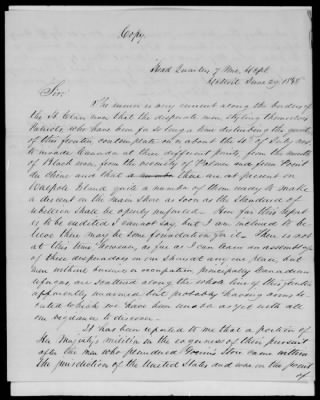 Copy.
Head Quarters of
Detroit June 29, 1838
Sir:
The rumor is very current along the borders of
the St Clair River that the desperate men, styling themselves
Patriots, who have for so long a time disturbed the quiet
of this frontier contemplate on or about the 4th of July next
to invade Canada at three different points, from the mouth
of Black river, from the vicinity of Palmer and from Point
du Chene and that there are at present on
Walpole Island quite a number of them ready to make
a descent on the main shore as soon as the Standard of
rebellion shall be openly unfurled. How far this report
is to be credited I cannot say, but I am inclined to be
lieve there may be some foundation for it. There is not
at this time however, as far as I can learn an assemblage
of these desperadoes on our shore at any one place, but
men without business or occupation principally Canadian
refugees, are scattered along the whole line of this frontier
apparently unarmed but probably having arms se-
creted which we have been unable as yet with all
our vigilance to discover.
It has been reported to me that a portion of
Her Majesty's militia in the eagerness of their pursuit
after the men who plundered Store came within
the jurisdiction of the United States and was on the point
of